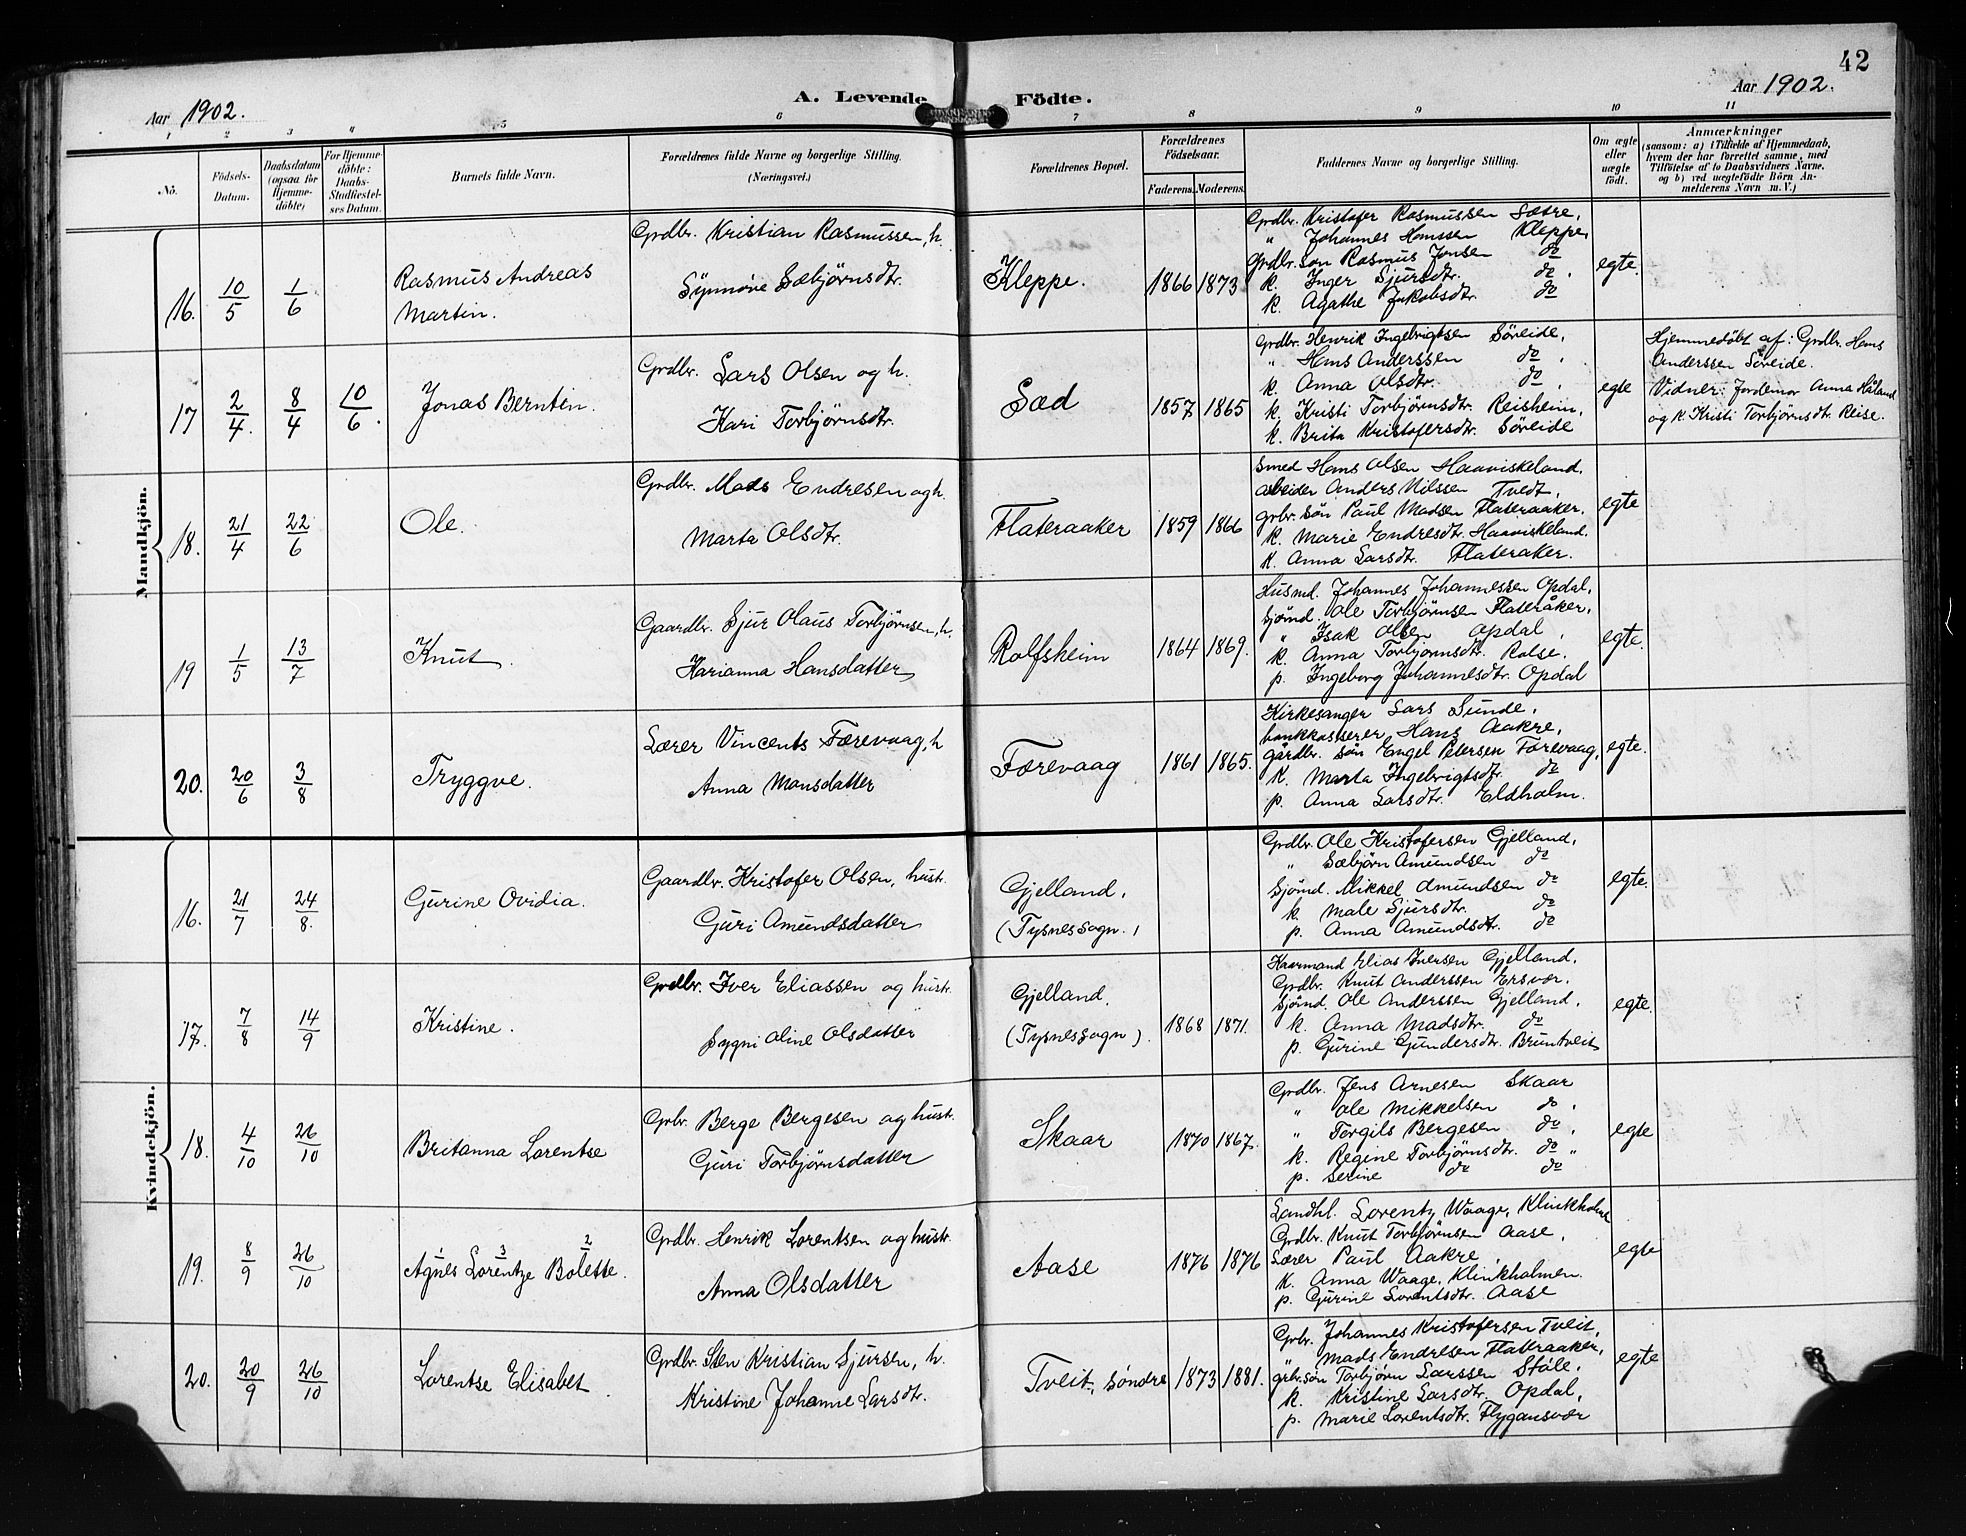 42
Aar 1902. A. Levende Födte. Aar 1902.
1 2 3 4 5 6 7 8 9 10 11
No.
Födsels-Datum.
Daabsdatum (ogsaa for Hjemme-döbte)
For Hjemme-döbte: Daabs-Stadfæstel-ses Datum.
Barnets fulde Navn.
Forældrenes fulde Navne og borgerlige Stilling. (Næringsvei.)
Forældrenes Bopæl.
Forældrenes Födselsaar.
Faderens. Moderens.
Faddernes Navne og borgerlige Stilling.
Om ægte eller uægte födt.
Anmærkninger
(saasom: a) i Tilfælde af Hjemmedaab,
hvem der har forrettet samme, med
Tilföielse af to Daabsvidners Navne,
og b) ved uægtefödte Börn An-
melderens Navn m. V.)
Mandkjön.
16. 10/5 1/6
Rasmus Andreas
Martin.
Grdbr. Kristian Rasmussen, h.
Synnöve Sæbjörnsdtr.
Kleppe. 1866 1873
Grdbr. Kristofer Rasmussen Sætre,
" Johannes Hanssen Kleppe,
Grdbr. søn Rasmus Jonsen do
k. Inger Sjursdtr. do.
k. Agathe Jakobsdtr. do
egte.
17 2/4. 8/4 10/6.
Jonas Berntin.
Grdbr. Lars Olsen og h.
Kari Torbjörnsdtr.
Sæd 1857 1865
Grdbr. Henrik Ingebrigtsen Söreide,
" Hans Anderssen do.
k. Anna Olsdtr. do.
k. Kristi Torbjörnsdtr. Reisheim,
k. Brita Kristofersdtr. Söreide
egte
Hjemmedöbt af: Grdbr. Hans
Anderssen Söreide.
Vidner: Jordemor Anna Håland
og k. Kristi Torbjörnsdtr. Reise.
18. 21/4 22/6
Ole.
Grdbr. Mads Endresen og h.
Marta Olsdtr.
Flateraaker 1859 1866
Smed Hans Olsen Haaviskeland.
arbeider Anders Nilssen Tvedt,
grbr. søn Paul Madsen Flateraaker.
k. Marie Endresdtr. Haaviskeland.
k. Anna Larsdtr. Flateraker.
egte
19 1/5 13/7
Knut.
Gaardbr. Sjur Olaus Torbjörnsen, h.
Karianna Hansdatter
Rolfsheim 1864 1869.
Husmd. Johannes Johannessen Opdal,
Sjömd. Ole Torbjörnsen Flateråker,
" Isak Olsen Opdal,
k. Anna Torbjörnsdtr. Rolse,
p. Ingeborg Johannesdtr. Opdal
egte.
20. 20/6 3/8
Tryggve.
Lærer Vincents Færevaag, h
Anna Monsdatter
Færevaag 1861 1865.
Kirkesanger Lars Sunde,
bankkasserer Hans Aakre,
gårdbr. søn Engel Petersen Færevaag,
k. Marta Ingebrigtsdtr. do
p. Anna Larsdtr. Eldholm.
egte.
Kvindekjön.
16. 21/7 24/8.
Gurine Ovidia.
Gaardbr. Kristofer Olsen, hustr.
Guri Amundsdatter
Gjelland,
(Tysnessogn.)
Grdbr. Ole Kristofersen Gjelland,
" Sæbjörn Amundsen do
Sjömd. Mikkel Amundsen do
k. Male Sjursdtr. do
p. Anna Amundsdtr. do
egte.
17. 7/8 14/9
Kristine.
Grdbr. Iver Eliassen og hustr.
Sygni Oline Olsdatter
Gjelland.
(Tysnessogn). 1868 1871.
Kaarmand Elias Iversen Gjelland,
Grdbr. Knut Anderssen Ersvær.
Sjömd. Ole Anderssen Gjelland,
k. Anna Madsdtr. do
p. Gurine Gundersdtr. Bruntveit
egte.
18. 4/10 26/10
Britanna Lorentse
Grbr. Berge Bergesen og hustr.
Guri Torbjörnsdatter
Skaar 1870 1867.
Grdbr. Jens Arnesen Skaar
" Ole Mikkelsen do.
" Torgils Bergesen do.
k. Regine Torbjörnsdtr. do "
p. Serine do do
egte
19. 8/9 26/10
1 3 2
Agnes Lorentze Bolette.
Grdbr. Henrik Lorentsen og hustr.
Anna Olsdatter
Aase 1876 1876
Landhl. Lorentz Waage, Klinkholmen
Grdbr. Knut Torbjörnsen Aase,
Lærer Paul Aakre,
k. Anna Waage, Klinkholmen.
p. Gurine Lorentsdtr. Aase
egte
20. 20/9 26/10
Lorentse Elisabet.
Grdbr. Sten Kristian Sjursen, h.
Kristine Johanne Larsdtr.
Tveit, søndre 1873 1881.
Grbr. Johannes Kristofersen Tveit,
" Mads Endresen Flateraaker,
grbr. søn Torbjörn Larssen Ståle,
k. Kristine Larsdtr. Opdal,
p. Marie Lorentsdtr. Flygansvær
egte